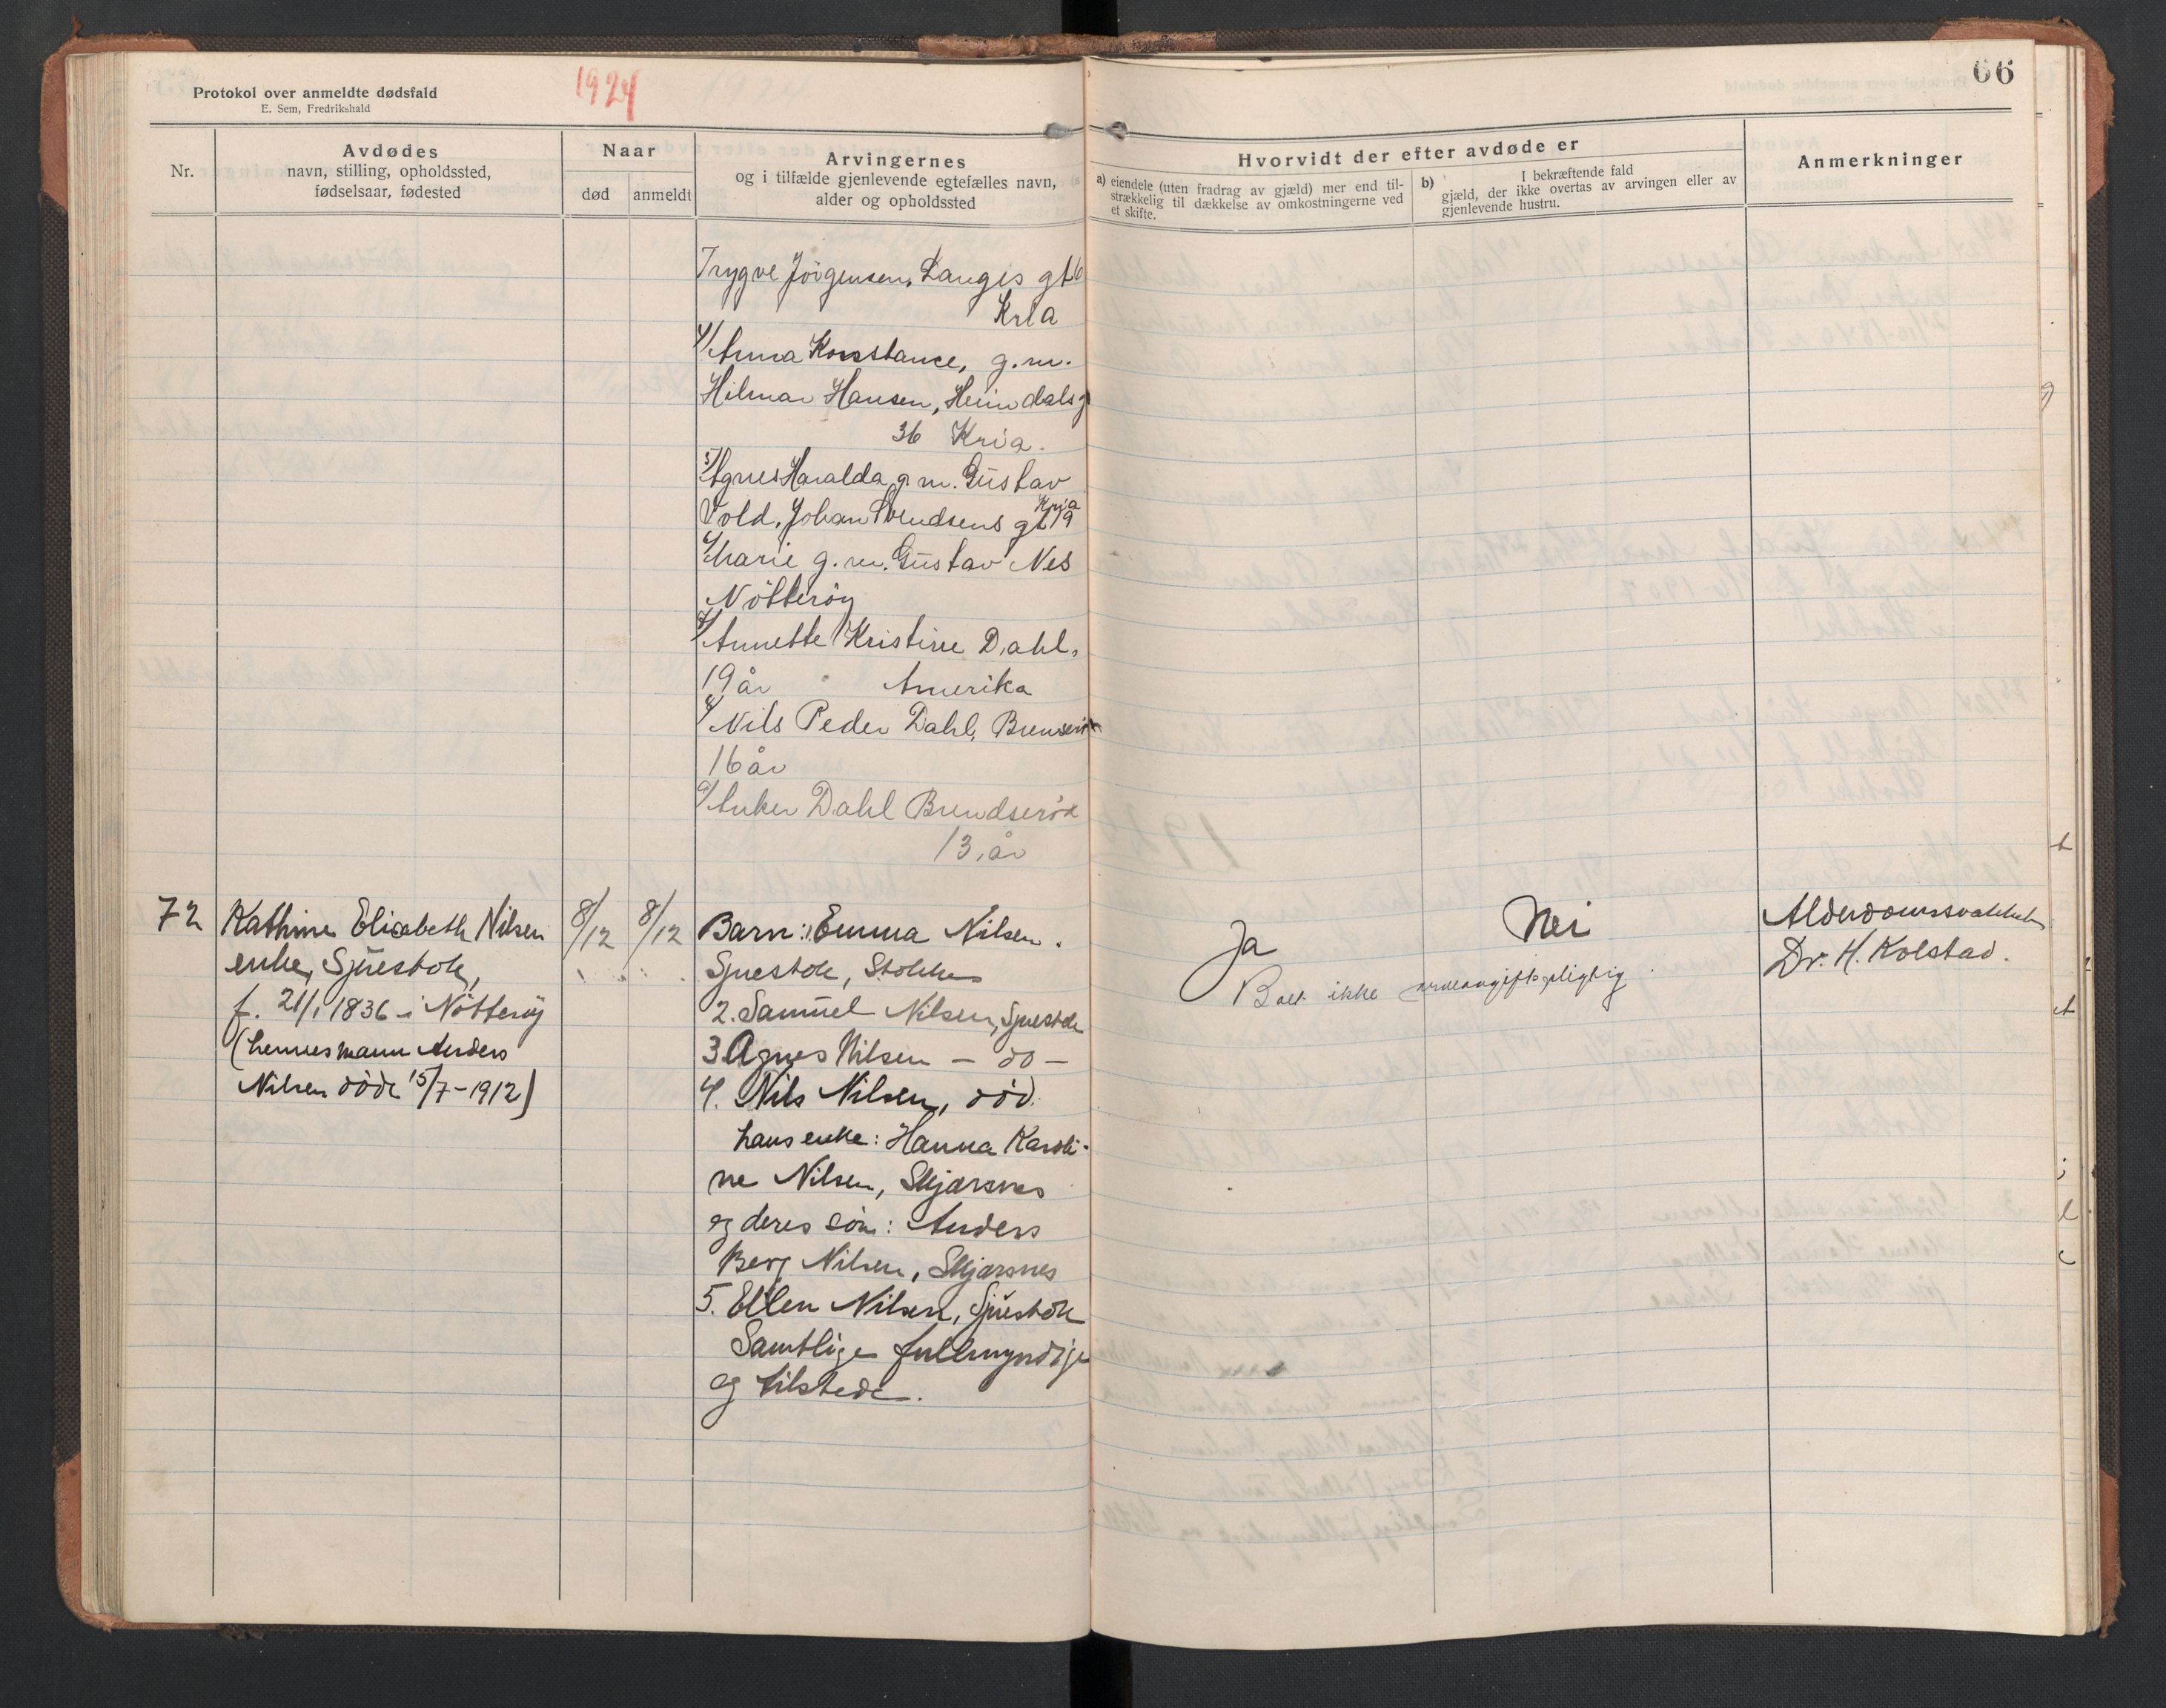 Protokol over anmeldte dødsfald
E. Sem, Fredrikshald
1924
66
Nr.
Avdødes
navn, stilling, opholdssted,
fødselsaar, fødested
Naar
død
anmeldt
Arvingernes
og i tilfælde gjenlevende egtefælles navn,
alder og opholdssted
Hvorvidt der efter avdøde er
a) eiendele (uten fradrag av gjæld) mer end til-
strækkelig til dækkelse av omkostningerne ved
et skifte.
b) I bekræftende fald
gjæld, der ikke overtas av arvingen eller av
gjenlevende hustru.
Anmerkninger
Trygve Jörgensen, Langes gt 6
Kria
4/ Anna Konstance, g.m.
Hilmar Hansen, Heimdalsg
36 Kria.
5/ Agnes Haralda g.m. Gustav
Vold, Johan Svendsens gt 19
Kria
Marie g.m. Gustav Nes
Nötteröy
7/ Annette Kristine Dahl,
19 år Amerika
8/ Nils Peder Dahl,
16 år
9/ Anker Dahl Brundseröd
13 år
72
Kathrine Elisabeth Nilsen
enke, Sjuestok,
f. 21/1 1836 i Nötteröy
(hennes mann Anders
Nilsen döde 15/7-1912)
8/12
8/12
Barn: 1. Emma Nilsen.
Sjuestok, Stokke
2. Samuel Nilsen, Sjuestok
3. Agnes Nilsen - do -
4. Nils Nilsen, död.
hans enke: Hanna Karoli-
ne Nilsen, Skjærsnes
og deres sön: Anders
Berg Nilsen, Skjærsnes
5. Ellen Nilsen, Sjuestok
Samtlige fullmyndige
og tilstede.
Ja
Boet ikke arveavgiftspligtig.
Nei
Alderdomssvakhet
Dr. H. Kolstad.